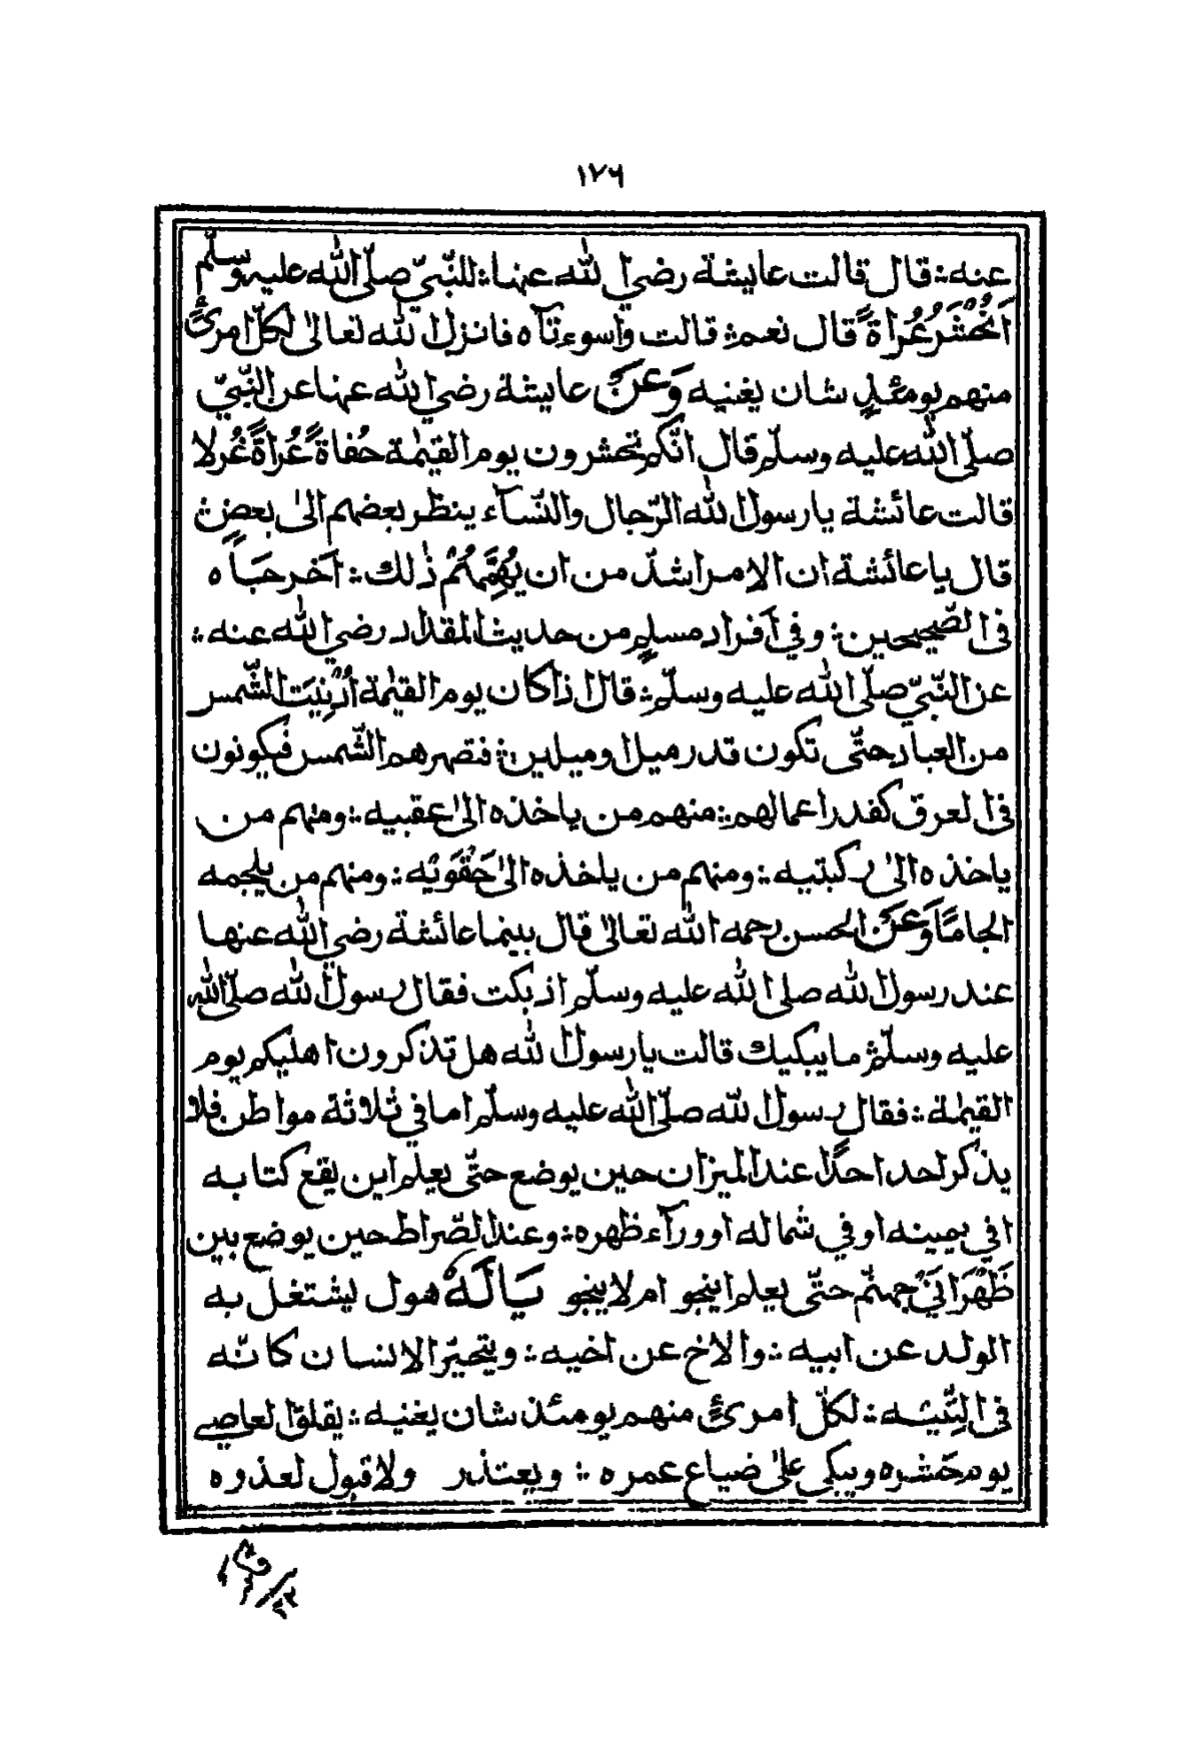 ١٧٦
عنه ؞ قال قالت عايشة رضي الله عنها ؞ للنّبيّ صلّى الله عليه وسلّم
اَنُحْشَرُ عُرَاةً قال نعم ؞ قالت واسوءتآه فانزل الله تعالىٰ لكلّ امرئٍ
منهم يومئذٍ شان يغنيه وَعَنْ عايشة رضي الله عنها عن النّبيّ
صلّى الله عليه وسلّم قال انّكم تحشرون يوم القيٰمة حُفاةً عُراةً غُرلا
قالت عائشة يا رسول الله الرّجال والنّسآء ينظر بعضهم الىٰ بعضٍ ؞
قال يا عائشة ان الامر اشدّ من ان يُهِمَّهُمْ ذٰلك ؞ اَخرجَاه
فى الصّحيحين ؞ وفي اَفراد مسلمٍ من حديث المقداد رضي الله عنه ؞
عن النّبيّ صلّى الله عليه وسلّم ؞ قال اذا كان يوم القيٰمة اُدْنِيَت الشّمس
من العباد حتّى تكون قدر ميل او ميلين ؞ فتصهرهم الشّمس فيكونون
فى العرق كقدر اعمالهم ؞ منهم من ياخذه الىٰ عقبيه ؞ ومنهم من
ياخذه الىٰ ركبتيه ؞ ومنهم من ياخذه الىٰ حَقْوَيْه ؞ ومنهم من يلجمه
الجامًا وَعَنْ الحسن رحمه الله تعالىٰ قال بينما عائشة رضي الله عنها
عند رسول الله صلى الله عليه وسلّم اذ بكت فقال رسول الله صلّى الله
عليه وسلّم ؞ ما يبكيك قالت يا رسول الله هل تذكرون اهليكم يوم
القيٰمة ؞ فقال رسول الله صلّى الله عليه وسلّم اما في ثلاثة مواطن فلا
يذكر احد احدًا عند الميزان حين يوضع حتّى يعلم اين يقع كتابه
افي يمينه او في شماله او ورآء ظهره ؞ وعند الصّراط حين يوضع بين
ظَهْرَانَيْ جهنّم حتّى يعلم اينجو ام لا ينجو يَالَهُ هول يشتغل به
الولد عن ابيه ؞ والاخ عن اخيه ؞ ويتحيّر الانسان كانّه
فى التِّيْه ؞ لكلّ امرئٍ منهم يومئذ شان يغنيه ؞ يقلق العاصي
يوم حَشره ويبكى علىٰ ضياع عمره ؞ ويعتذر ولا قبول لعذره